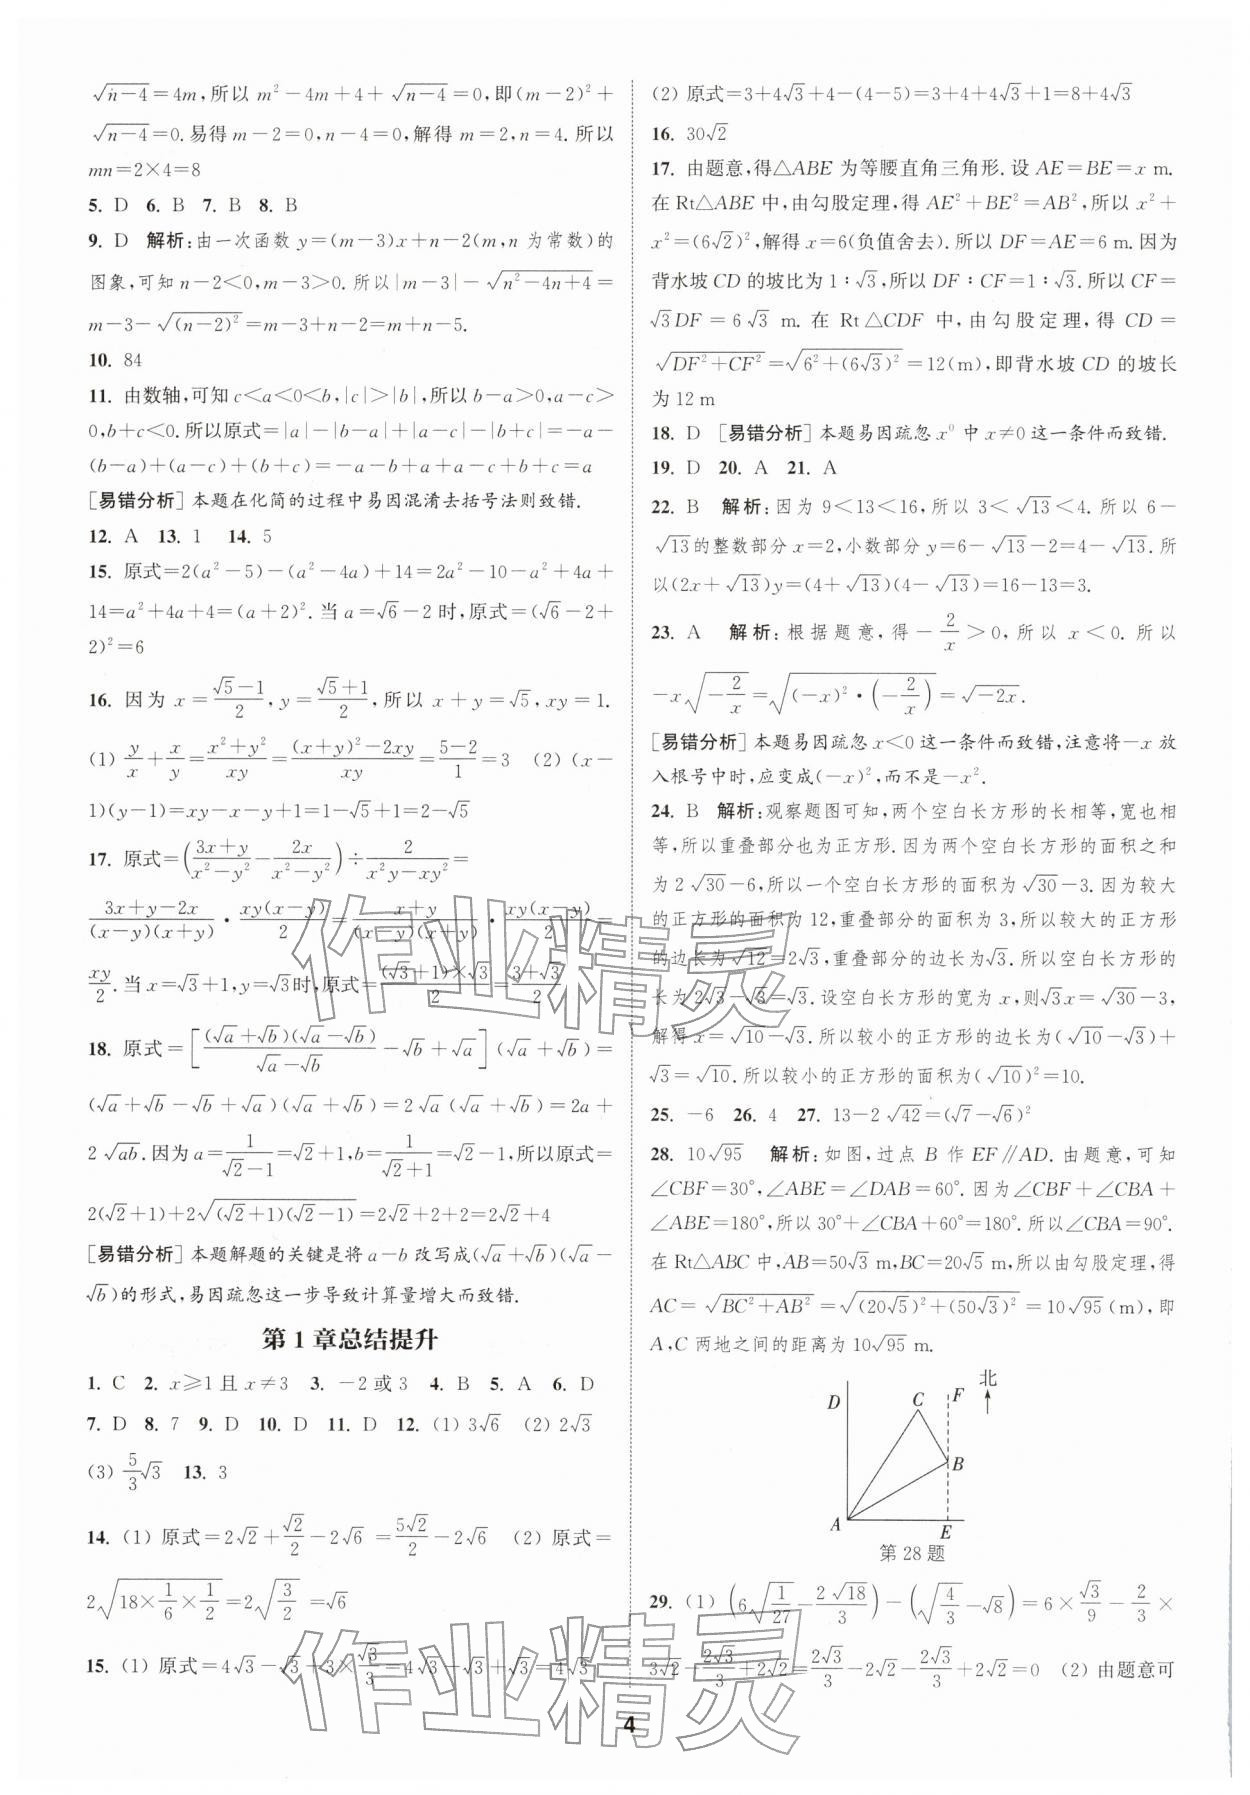 √(n-4)=4m,所以 m²-4m+4+√(n-4)=0,即(m-2)²+
√(n-4)=0.易得 m-2=0,n-4=0,解得 m=2,n=4.所以
mn=2×4=8
5. D  6. B  7. B  8. B
9. D  解析:由一次函数 y=(m-3)x+n-2(m,n 为常数)的
图象,可知 n-2<0,m-3>0.所以|m-3|-√(n²-4n+4)=
m-3-√((n-2)²)=m-3+n-2=m+n-5.
10. 84
11. 由数轴,可知 c<a<0<b,|c|>|b|,所以 b-a>0,a-c>
0,b+c<0.所以原式=|a|-|b-a|+|a-c|-|b+c|=-a-
(b-a)+(a-c)+(b+c)=-a-b+a+a-c+b+c=a
[易错分析] 本题在化简的过程中易因混淆去括号法则致错.
12. A  13. 1  14. 5
15. 原式=2(a²-5)-(a²-4a)+14=2a²-10-a²+4a+
14=a²+4a+4=(a+2)².当 a=√6-2 时,原式=(√6-2+
2)²=6
16. 因为 x=(√5-1)/2,y=(√5+1)/2,所以 x+y=√5,xy=1.
(1) y/x+x/y=(x²+y²)/xy=((x+y)²-2xy)/xy=(5-2)/1=3  (2) (x-
1)(y-1)=xy-x-y+1=1-√5+1=2-√5
17. 原式=((3x+y)/(x²-y²)-2x/(x²-y²))÷2/(x²y-xy²)=
(3x+y-2x)/((x-y)(x+y))·xy(x-y)/2=(x+y)/((x-y)(x+y))·xy(x-y)/2=
xy/2.当 x=√3+1,y=√3时,原式=((√3+1)×√3)/2=(3+√3)/2
18. 原式=[(√a+√b)(√a-√b)/(√a-√b)-√b+√a](√a+√b)=
(√a+√b-√b+√a)(√a+√b)=2√a(√a+√b)=2a+
2√(ab).因为 a=1/(√2-1)=√2+1,b=1/(√2+1)=√2-1,所以原式=
2(√2+1)+2√((√2+1)(√2-1))=2√2+2+2=2√2+4
[易错分析] 本题解题的关键是将 a-b 改写成(√a+√b)(√a-
√b)的形式,易因疏忽这一步导致计算量增大而致错.
第 1 章总结提升
1. C  2. x≥1 且 x≠3  3. -2 或 3  4. B  5. A  6. D
7. D  8. 7  9. D  10. D  11. D  12. (1) 3√6  (2) 2√3
(3) 5/3√3  13. 3
14. (1) 原式=2√2+√2/2-2√6=5√2/2-2√6  (2) 原式=
2√(18×1/6×1/2)=2√(3/2)=√6
15. (1) 原式=4√3-√3+3×√3/3=4√3-√3+√3=4√3
(2) 原式=3+4√3+4-(4-5)=3+4+4√3+1=8+4√3
16. 30√2
17. 由题意,得△ABE 为等腰直角三角形.设 AE=BE=x m.
在 Rt△ABE 中,由勾股定理,得 AE²+BE²=AB²,所以 x²+
x²=(6√2)²,解得 x=6(负值舍去).所以 DF=AE=6 m.因为
背水坡 CD 的坡比为 1∶√3,所以 DF∶CF=1∶√3.所以 CF=
√3DF=6√3 m.在 Rt△CDF 中,由勾股定理,得 CD=
√(DF²+CF²)=√(6²+(6√3)²)=12(m),即背水坡 CD 的坡长
为 12 m
18. D  [易错分析] 本题易因疏忽 x⁰ 中 x≠0 这一条件而致错.
19. D  20. A  21. A
22. B  解析:因为 9<13<16,所以 3<√13<4.所以 6-
√13的整数部分 x=2,小数部分 y=6-√13-2=4-√13.所
以(2x+√13)y=(4+√13)(4-√13)=16-13=3.
23. A  解析:根据题意,得-2/x>0,所以 x<0.所以
-x√(-2/x)=√((-x)²·(-2/x))=√(-2x).
[易错分析] 本题易因疏忽 x<0 这一条件而致错,注意将-x 放
入根号中时,应变成(-x)²,而不是-x².
24. B  解析:观察题图可知,两个空白长方形的长相等,宽也相
等,所以重叠部分也为正方形.因为两个空白长方形的面积之和
为 2√30-6,所以一个空白长方形的面积为√30-3.因为较大
的正方形的面积为 12,重叠部分的面积为 3,所以较大的正方形
的边长为√12=2√3,重叠部分的边长为√3.所以空白长方形的
长为 2√3-√3=√3.设空白长方形的宽为 x,则√3x=√30-3,
解得 x=√10-√3.所以较小的正方形的边长为(√10-√3)+
√3=√10.所以较小的正方形的面积为(√10)²=10.
25. -6  26. 4  27. 13-2√42=(√7-√6)²
28. 10√95  解析:如图,过点 B 作 EF∥AD.由题意,可知
∠CBF=30°,∠ABE=∠DAB=60°.因为∠CBF+∠CBA+
∠ABE=180°,所以 30°+∠CBA+60°=180°.所以∠CBA=90°.
在 Rt△ABC 中,AB=50√3 m,BC=20√5 m,所以由勾股定理,得
AC=√(BC²+AB²)=√((20√5)²+(50√3)²)=10√95(m),即
A,C 两地之间的距离为 10√95 m.
北
D
C
F
B
A
E
第 28 题
29. (1) (6√(1/27)-2√18/3)-(√(4/3)-√8)=6×√3/9-2/3×
3√2-2√3/3+2√2=2√3/3-2√2-2√3/3+2√2=0  (2) 由题意可
4
作业精灵
作业精灵